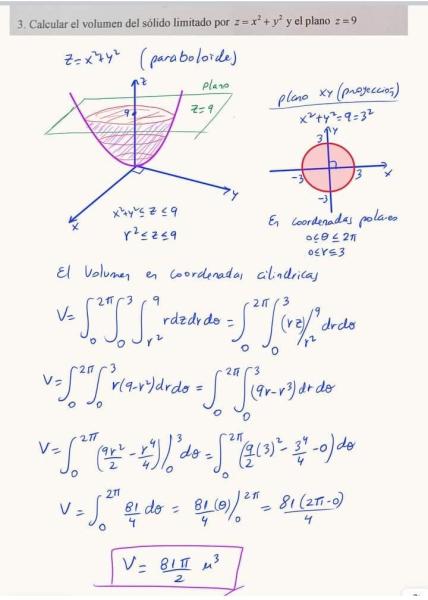 3. Calcular el volumen del sólido limitado por z = x² + y² y el plano z = 9
z = x²+y² (paraboloide)
z
plano
z=9
9
y
x
x²+y² ≤ z ≤ 9
r² ≤ z ≤ 9
plano xy (proyeccion)
x²+y² = 9 = 3²
y
3
-3
3
x
-3
En coordenadas polares
0≤θ≤2π
0≤r≤3
El Volumen en coordenadas cilindricas
V = ∫₀^2π ∫₀^3 ∫_r²^9 r dz dr dθ = ∫₀^2π ∫₀^3 (rz)/_r²^9 dr dθ
V = ∫₀^2π ∫₀^3 r(9-r²) dr dθ = ∫₀^2π ∫₀^3 (9r-r³) dr dθ
V = ∫₀^2π (9r²/2 - r⁴/4)/₀^3 dθ = ∫₀^2π (9/2 (3)² - 3⁴/4 - 0) dθ
V = ∫₀^2π 81/4 dθ = 81/4 (θ)/₀^2π = 81(2π-0)/4
V = 81π/2 u³